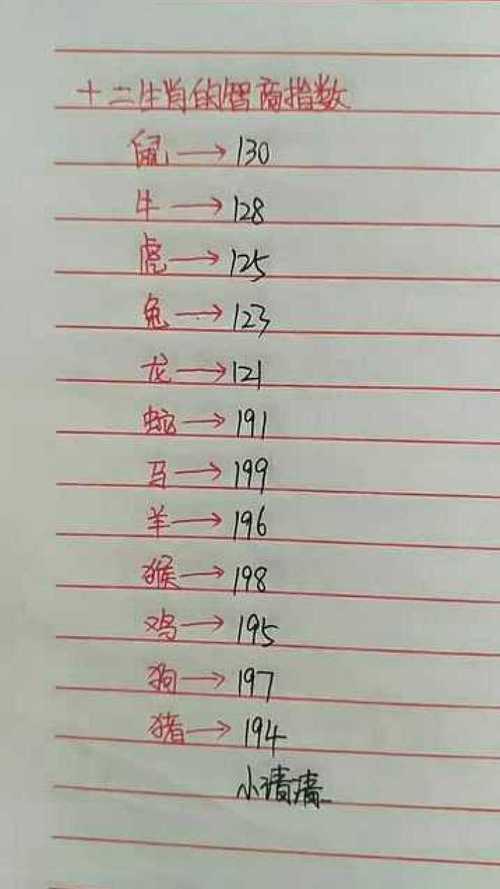 十二生肖的智商指数
鼠→130
牛→128
虎→125
兔→123
龙→121
蛇→191
马→199
羊→196
猴→198
鸡→195
狗→197
猪→194
小